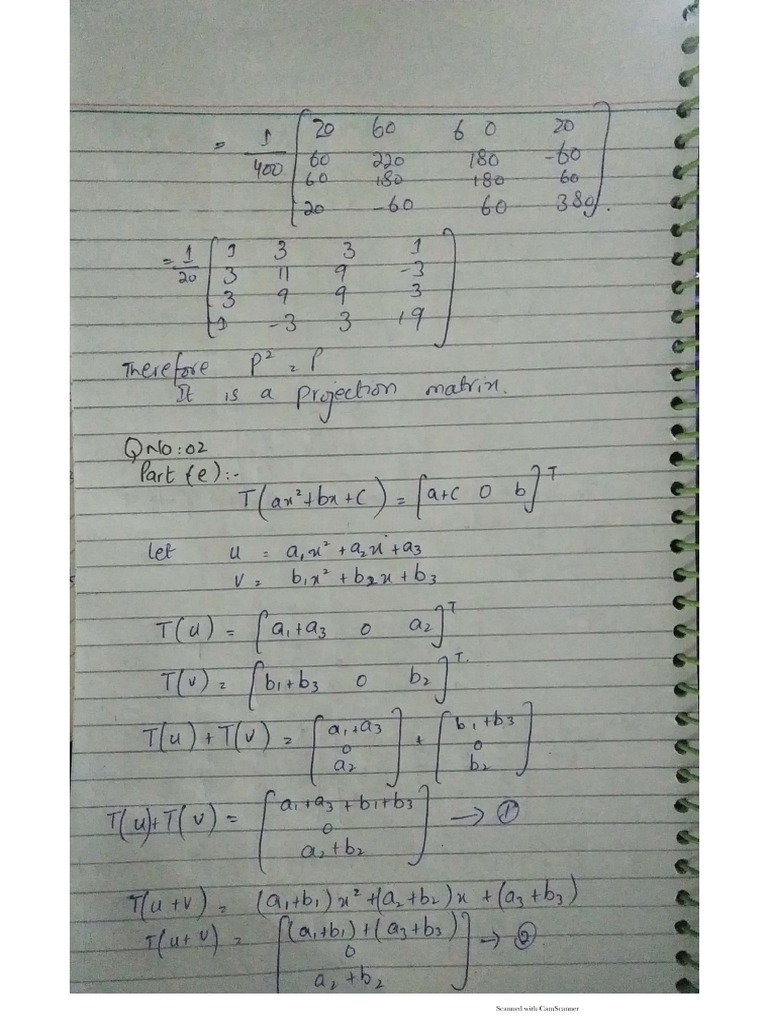 = 1/400 [20 60 60 20
60 220 180 -60
60 180 180 60
20 -60 60 380].
= 1/20 [1 3 3 1
3 11 9 -3
3 9 9 3
1 -3 3 19]
Therefore P² = P
It is a projection matrix.
QNO:02
Part (e):-
T(ax²+bx+c) = [a+c 0 b]ᵀ
let u = a₁x²+a₂x+a₃
v = b₁x²+b₂x+b₃
T(u) = [a₁+a₃ 0 a₂]ᵀ
T(v) = [b₁+b₃ 0 b₂]ᵀ.
T(u)+T(v) = [a₁+a₃ 0 a₂] + [b₁+b₃ 0 b₂]
T(u)+T(v) = [a₁+a₃+b₁+b₃ 0 a₂+b₂] → ①
T(u+v) = (a₁+b₁)x²+(a₂+b₂)x+(a₃+b₃)
T(u+v) = [(a₁+b₁)+(a₃+b₃) 0 a₂+b₂] → ②
Scanned with CamScanner